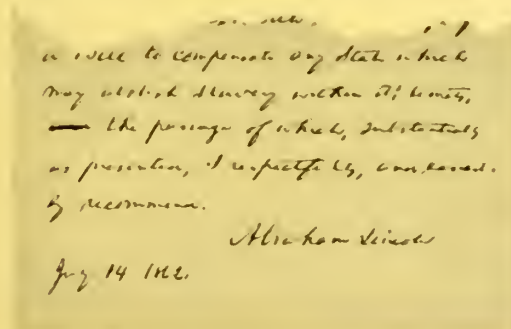 a Bill to compensate any State which
may abolish slavery within it's limits,
the passage of which, substantially
as presented, I respectfully, and earnest-
ly recommend.
Abraham Lincoln
July 14 1862.